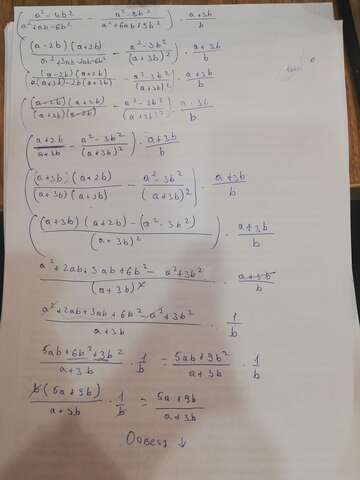 (a²-4b²/a²+ab-6b² - a²-3b²/a²+6ab+9b²) · a+3b/b
((a-2b)(a+2b)/a²+3ab-2ab-6b² - a²-3b²/(a+3b)²) · a+3b/b
((a-2b)(a+2b)/a(a+3b)-2b(a+3b) - a²-3b²/(a+3b)²) · a+3b/b
((a-2b)(a+2b)/(a+3b)(a-2b) - a²-3b²/(a+3b)²) · a+3b/b
(a+2b/a+3b - a²-3b²/(a+3b)²) · a+3b/b
((a+3b)(a+2b)/(a+3b)(a+3b) - a²-3b²/(a+3b)²) · a+3b/b
((a+3b)(a+2b)-(a²-3b²)/(a+3b)²) · a+3b/b
a²+2ab+3ab+6b²-a²+3b²/(a+3b)² · a+3b/b
a²+2ab+3ab+6b²-a²+3b²/a+3b · 1/b
5ab+6b²+3b²/a+3b · 1/b = 5ab+9b²/a+3b · 1/b
b(5a+9b)/a+3b · 1/b = 5a+9b/a+3b
Ответ ↓